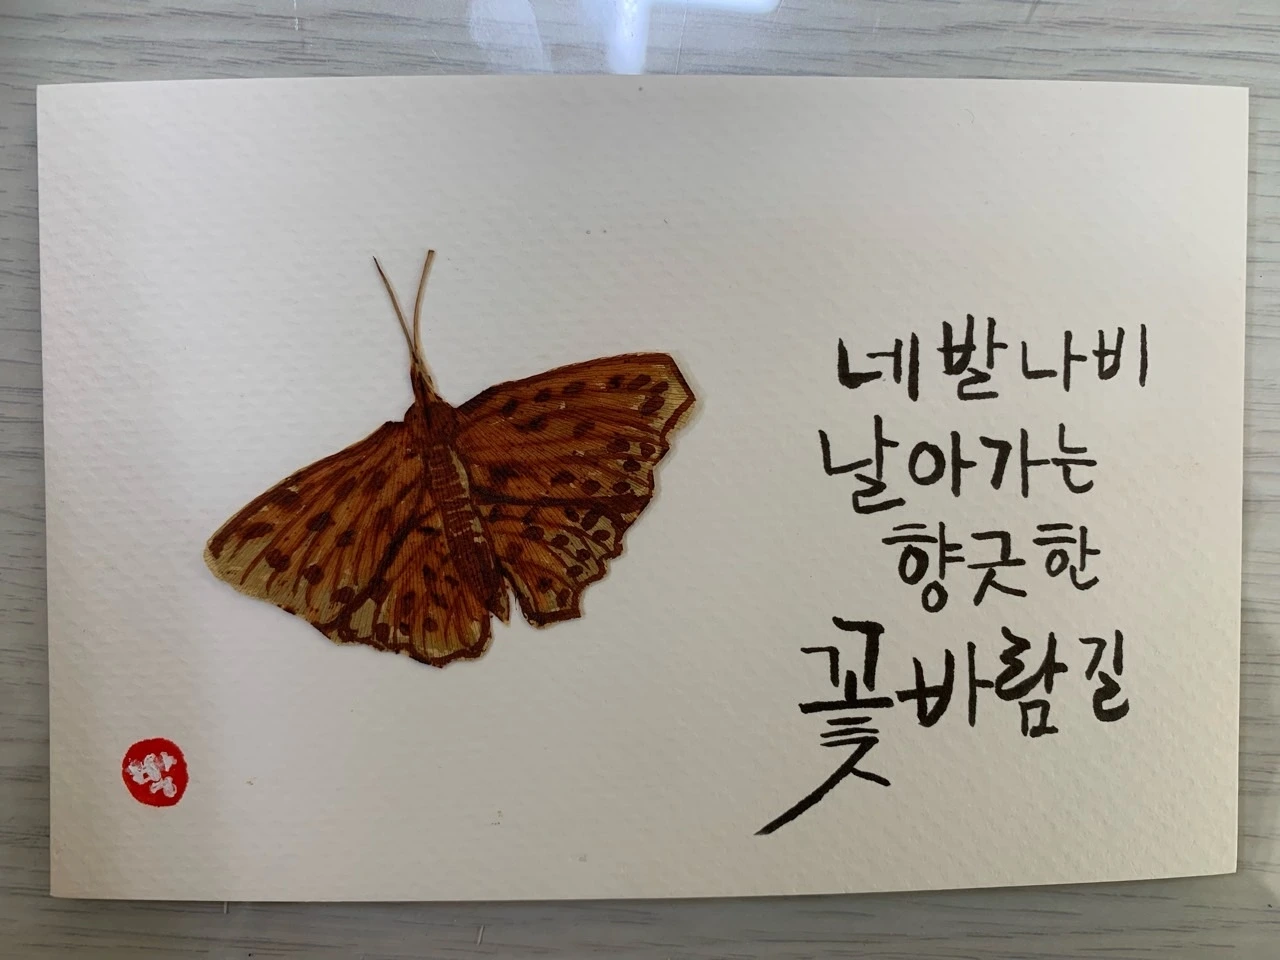 네발나비
날아가는
향긋한
꽃바람길